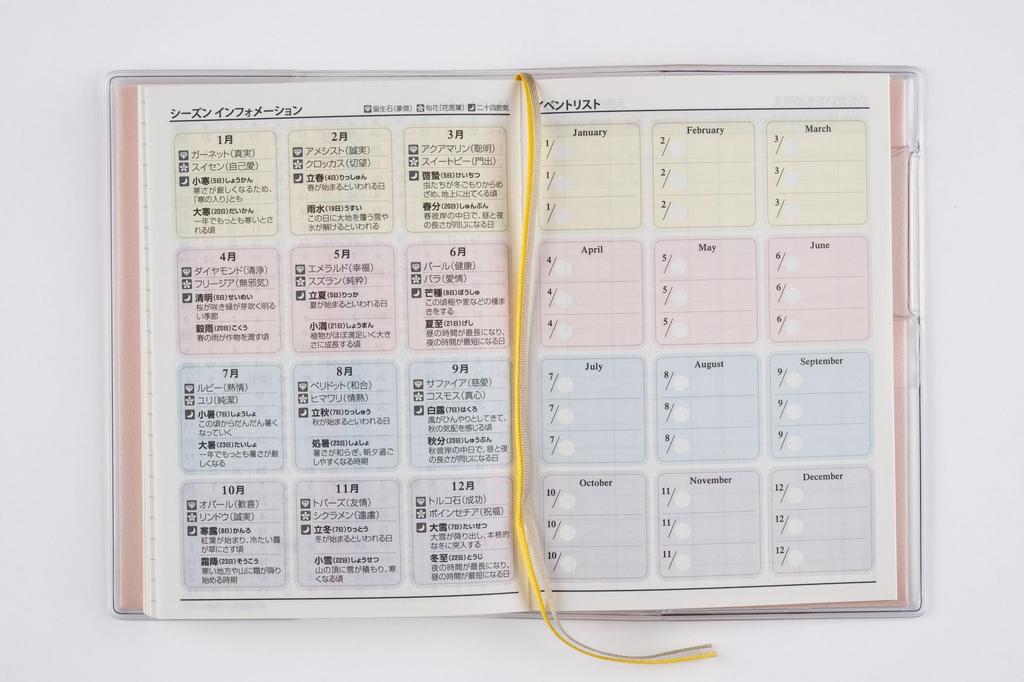 シーズン インフォメーション
誕生石(象徴) 旬花(花言葉) 二十四節気
1月
ガーネット(真実)
スイセン(自己愛)
小寒(5日)しょうかん
寒さが厳しくなるため、
「寒の入り」とも
大寒(20日)だいかん
一年でもっとも寒いとさ
れる頃
2月
アメシスト(誠実)
クロッカス(切望)
立春(4日)りっしゅん
春が始まるといわれる日
雨水(19日)うすい
この日に大地を覆う雪や
氷が解けるといわれる
3月
アクアマリン(聡明)
スイートピー(門出)
啓蟄(5日)けいちつ
虫たちが冬ごもりからめ
ざめ、地上に出てくる頃
春分(20日)しゅんぶん
春彼岸の中日で、昼と夜
の長さが同じになる日
4月
ダイヤモンド(清浄)
フリージア(無邪気)
清明(5日)せいめい
桜が咲き緑が芽吹く明る
い季節
穀雨(20日)こくう
春の雨が作物を潤す頃
5月
エメラルド(幸福)
スズラン(純粋)
立夏(5日)りっか
夏が始まるといわれる日
小満(21日)しょうまん
植物がほぼ満足いく大き
さに成長する頃
6月
パール(健康)
バラ(愛情)
芒種(6日)ぼうしゅ
この頃稲や麦などの種ま
きをする
夏至(21日)げし
昼の時間が最長になり、
夜の時間が最短になる日
7月
ルビー(熱情)
ユリ(純潔)
小暑(7日)しょうしょ
この頃からだんだん暑く
なっていく
大暑(23日)たいしょ
一年でもっとも暑さが厳
しくなる
8月
ペリドット(和合)
ヒマワリ(情熱)
立秋(7日)りっしゅう
秋が始まるといわれる日
処暑(23日)しょしょ
暑さが和らぎ、朝夕過ご
しやすくなる時期
9月
サファイア(慈愛)
コスモス(真心)
白露(7日)はくろ
風がひんやりとしてきて、
秋の気配を感じる頃
秋分(23日)しゅうぶん
秋彼岸の中日で、昼と夜
の長さが同じになる日
10月
オパール(歓喜)
リンドウ(誠実)
寒露(8日)かんろ
紅葉が始まり、冷たい露
が草にさす頃
霜降(23日)そうこう
寒い地方や山に霜が降り
始める時期
11月
トパーズ(友情)
シクラメン(遠慮)
立冬(7日)りっとう
冬が始まるといわれる日
小雪(22日)しょうせつ
山の頂に雪が積もり、寒
くなる頃
12月
トルコ石(成功)
ポインセチア(祝福)
大雪(7日)たいせつ
大雪が降り出し、本格的
な冬に突入する
冬至(22日)とうじ
夜の時間が最長になり、
昼の時間が最短になる日
イベントリスト
January
1/
1/
1/
February
2/
2/
2/
March
3/
3/
3/
April
4/
4/
4/
May
5/
5/
5/
June
6/
6/
6/
July
7/
7/
7/
August
8/
8/
8/
September
9/
9/
9/
October
10/
10/
10/
November
11/
11/
11/
December
12/
12/
12/